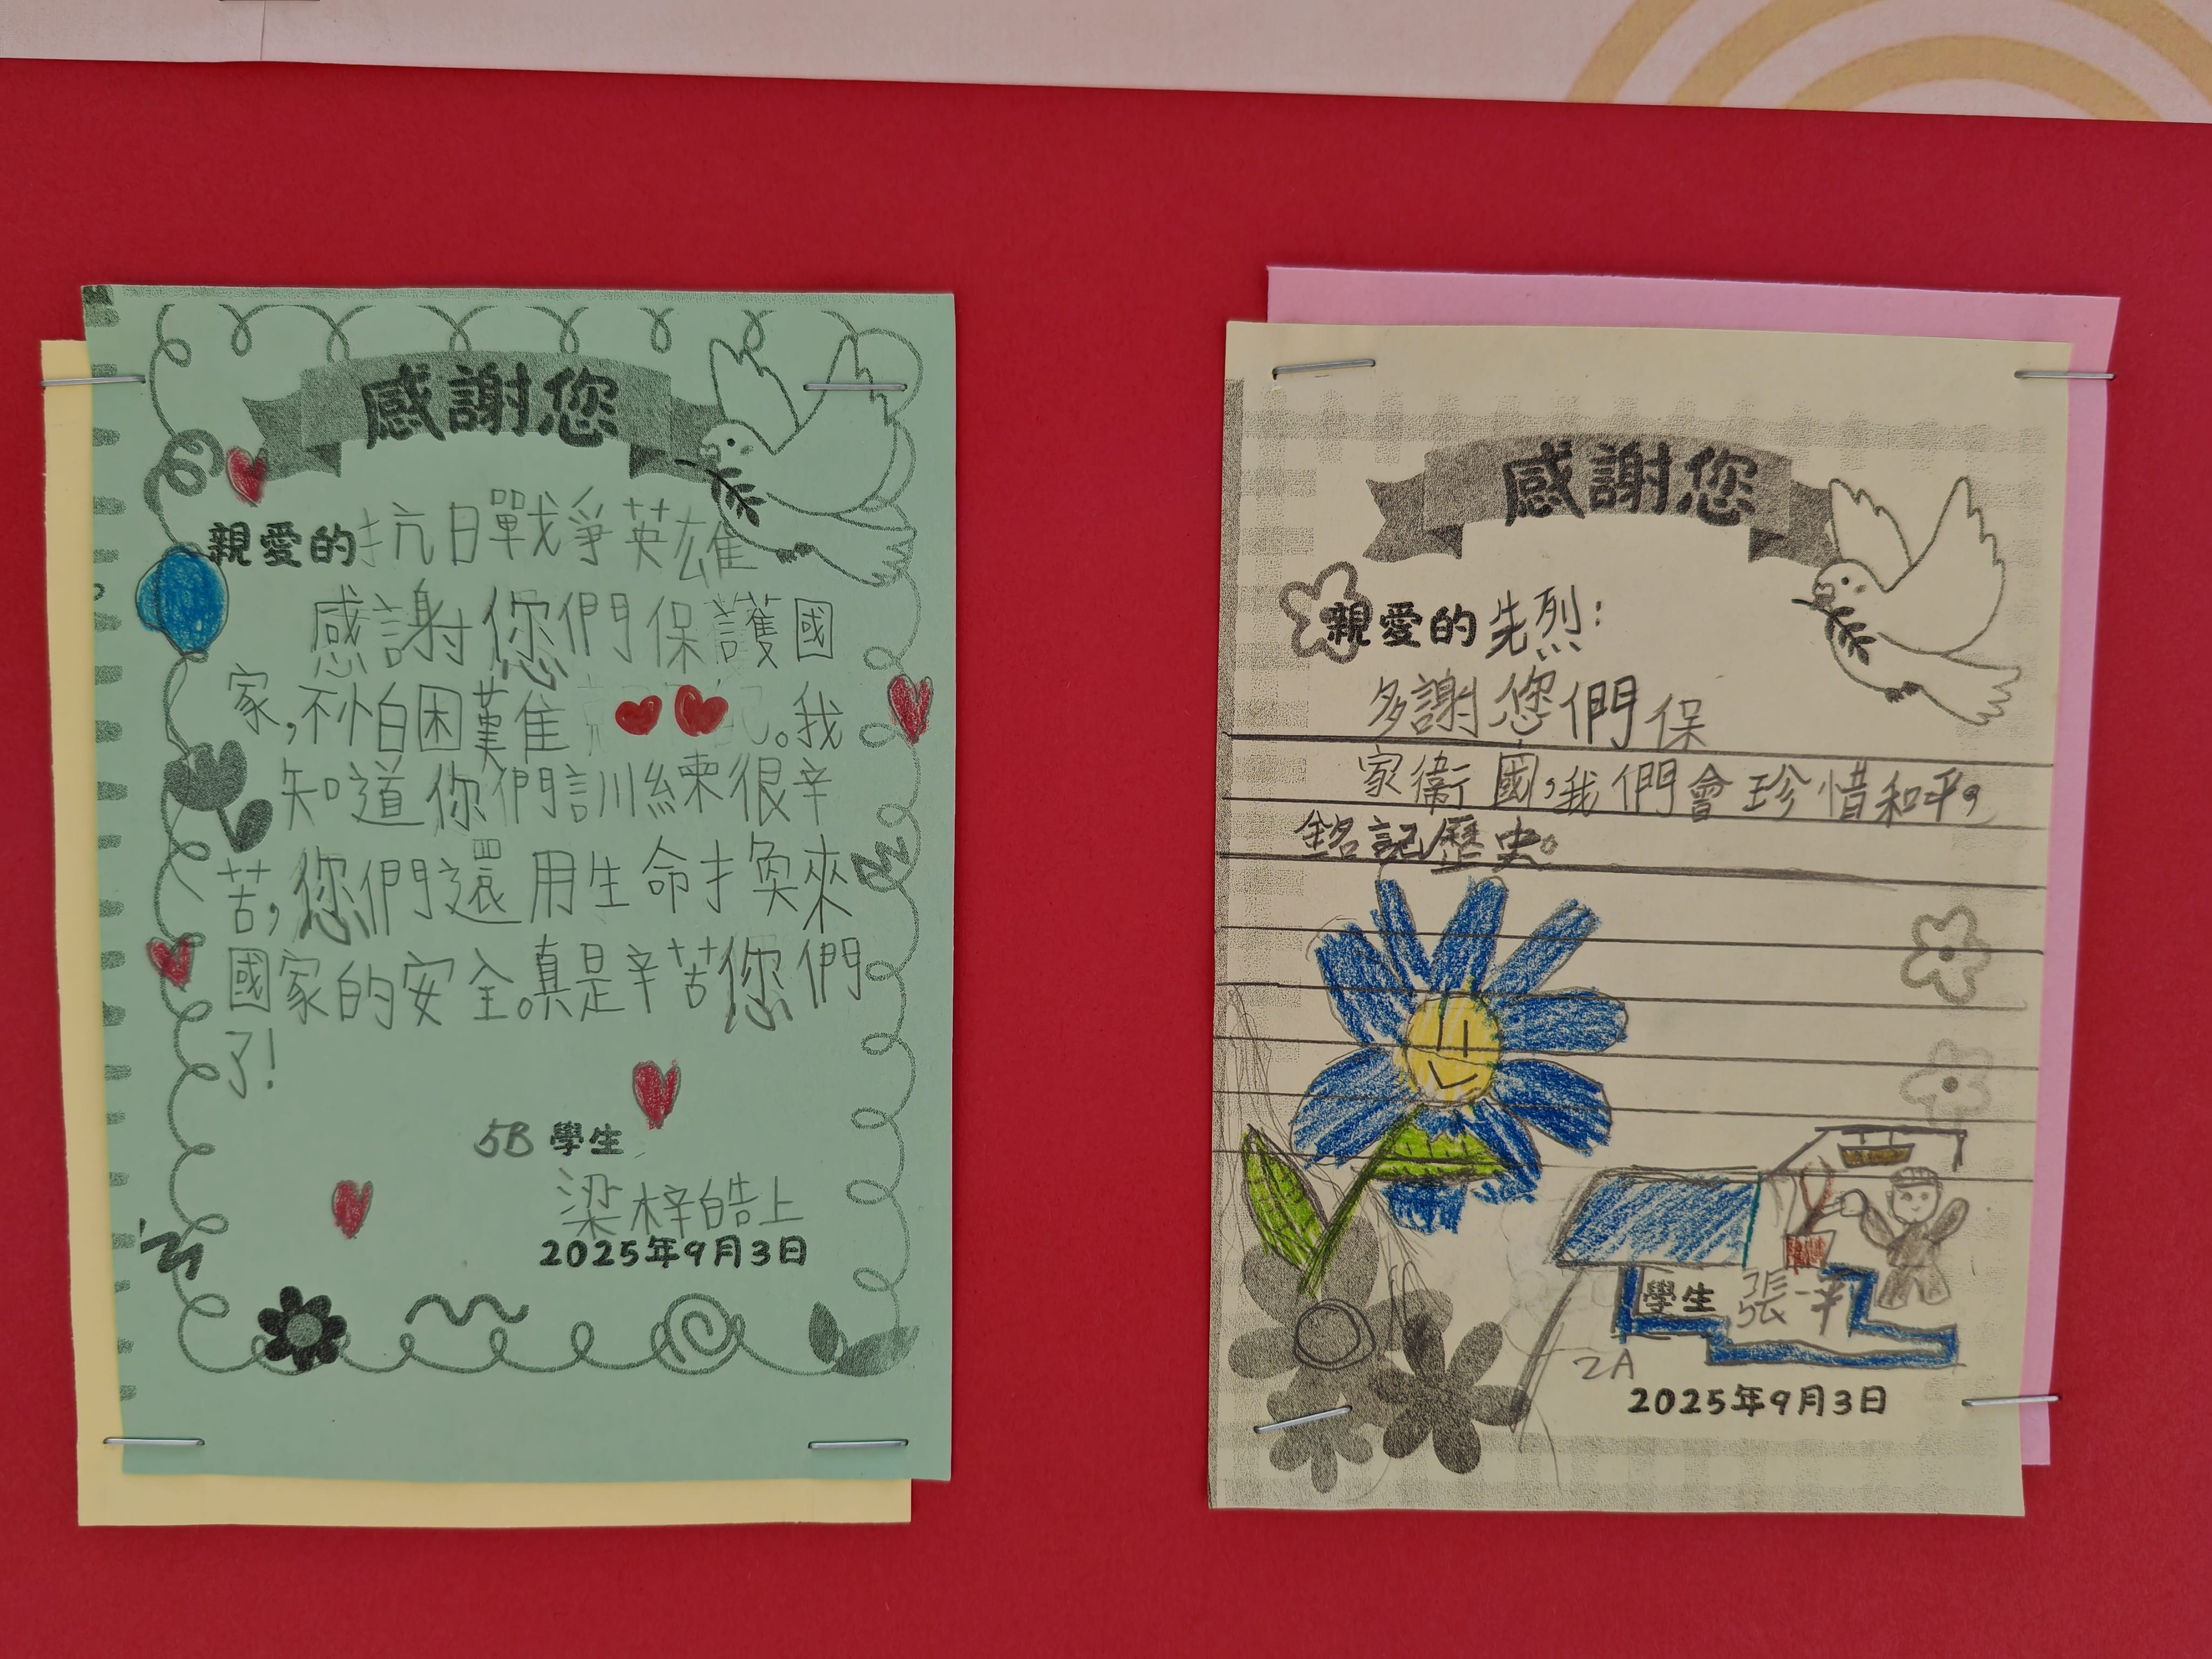 感謝您
親愛的抗日戰爭英雄
感謝您們保護國
家,不怕困難。我
知道您們訓練很辛
苦,您們還用生命換來
國家的安全。真是辛苦您們
了!
5B 學生
梁梓皓上
2025年9月3日
感謝您
親愛的先烈:
多謝您們保
家衞國,我們會珍惜和平,
銘記歷史。
學生 張一
2A
2025年9月3日